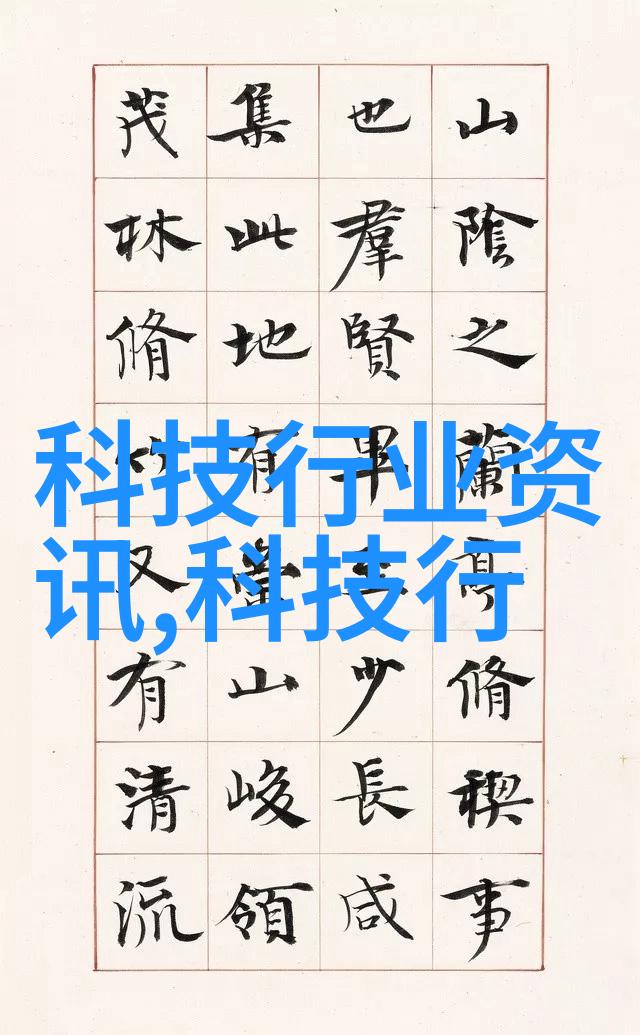 山陰之蘭亭脩稧事
也羣賢畢至少長咸
集此地有崇山峻領
茂林脩竹又有清流
科技行业资
讯,科技行